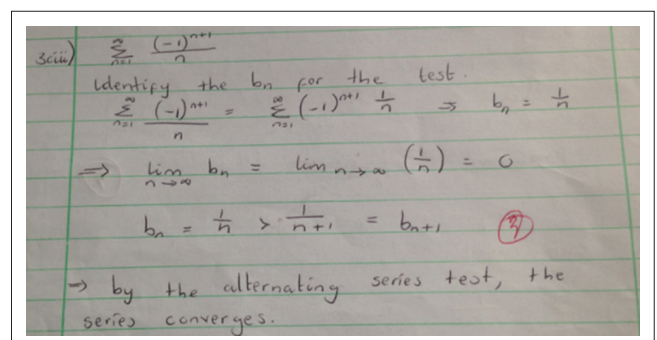 3ciii) ∞ Σ n=1 (-1)^{n+1} / n
Identify the bn for the test.
∞ Σ n=1 (-1)^{n+1} / n = ∞ Σ n=1 (-1)^{n+1} 1/n ⇒ bn = 1/n
⇒ lim n→∞ bn = lim n→∞ (1/n) = 0
bn = 1/n > 1/(n+1) = bn+1
→ by the alternating series test, the
series converges.